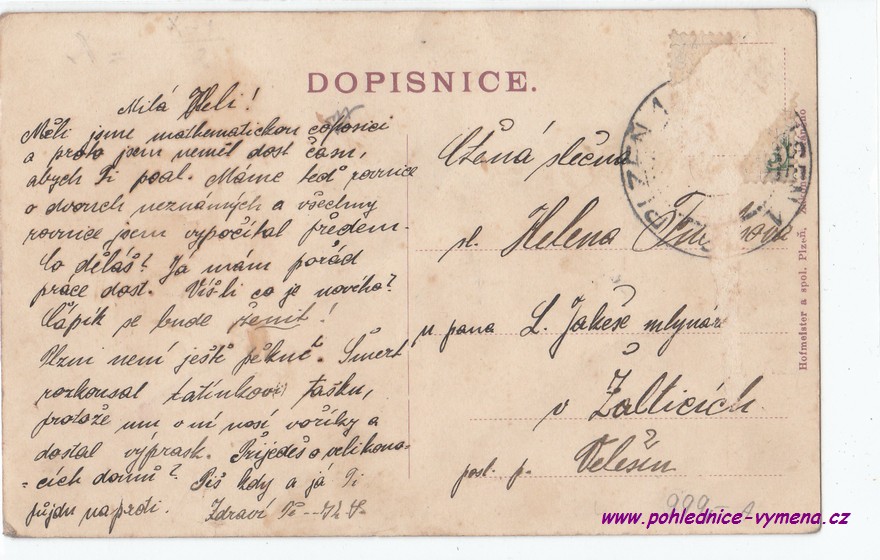 DOPISNICE.
Milá Heli!
Měli jsme mathematickou composici
a proto jsem neměl dost času,
abych Ti psal. Máme teď rovnice
o dvouch neznámých a všechny
rovnice jsem vypočítal předem.
Co děláš? Já mám pořád
prace dost. Víš-li co je nového?
Čápik se bude ženit!
Plzni není ještě pěkně. Šmert
rozkousal tatínkovi tašku,
protože mu v ní nosí voříky a
dostal výprask. Přijedeš o veliknoː
=cích domů? Piš kdy a já Ti
půjdu naproti. Zdraví Tě
Ctěná slečna
sl. Helena
u pana L. Jakeše mlynáře
v Žalticích
posl. p. Velešín
PLZEŇ 1
Hofmeister a spol. Plzeň,
989
www.pohlednice-vymena.cz